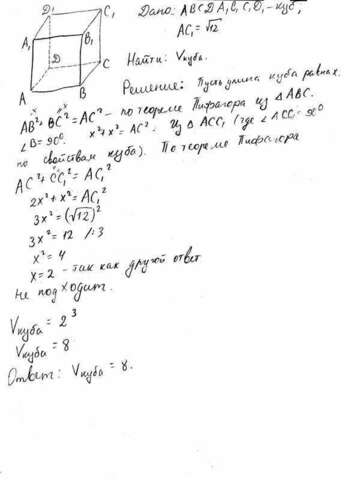 D₁ C₁ Дано: ABCDA₁B₁C₁D₁ - куб,
AC₁ = √12
A₁ B₁
Найти: Vкуба.
D C
A B
Решение: Пусть длина куба равна x.
x x
AB² + BC² = AC² - по теореме Пифагора из △ABC.
∠B = 90° x² + x² = AC². Из △ACC₁ (где ∠ACC₁ = 90°
по свойствам куба). По теореме Пифагора
AC² + CC₁² = AC₁²
2x² + x² = AC₁²
3x² = (√12)²
3x² = 12 /:3
x² = 4
x = 2 - так как другой ответ
не подходит.
Vкуба = 2³
Vкуба = 8
Ответ: Vкуба = 8.